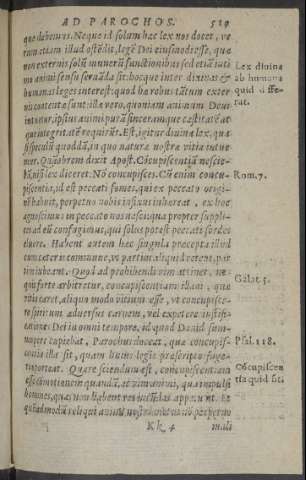 AD PAROCHOS. 519
que debemus. Neque id solum hæc lex nos docet, ve
rum etiam illud ostēdit, legē Dei eiusmodi esse, quæ
non externis solū munerū functionibus sed etiā inti
mo animi sensu seruāda sit: hocque inter diuinas &
humanas leges interest: quod hæ rebus tātum exter
nis contentæ sunt: illa vero, quoniam animum Deus
intuetur, ipsius animi purā sincerāmque castitatē at
que integritatē requirit. Est, igitur diuina lex, qua
si speculū quoddā, in quo naturæ nostræ vitia intue
mur. Quāobrem dixit Apost. Cōcupiscentiā nescie-
bā, nisi lex diceret: Nō concupisces. Cū enim concu-
piscentia, id est peccati fomes, qui ex peccato origi-
nē habuit, perpetuo nobis infixus inhæreat, ex hoc
agnoscimus in peccato nos nasci: quāpropter suppli-
ces ad eū confugimus, qui solus potest peccati sordes
eluere. Habent autem hæc singula præcepta illud
inter se commune, vt partim aliquid vetent, par
tim iubeant. Quod ad prohibendi vim attinet, ne
quis forte arbitretur, concupiscentiam illam, quæ
vitio caret, aliquo modo vitium esse, vt concupisce-
re spiritum aduersus carnem, vel expetere iustifi-
cationes Dei in omni tempore, id quod Dauid sum-
mopere cupiebat, Parochus doceat, quæ concupis-
centia illa sit, quam huius legis præscripto fuge-
re oporteat. Quare sciendum est, concupiscentiam
esse cōmotionem quandā, ac vim animi, qua impulsi
homines, quas non habent res iucūdas appetunt. Et
quēadmodū reliqui animi nostri motus nō perpetuo
Kk 4 mali
Lex diuina
ab humana
quid diffe-
rat.
Rom. 7.
Galat. 5.
Psal. 118.
Cōcupiscen
tia quid sit.